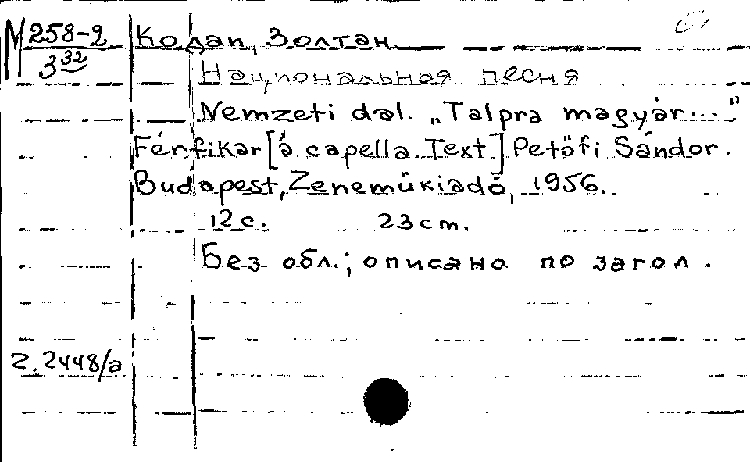 М 258-2 Кодаи, Золтан.
3 32
Национальная песня
Nemzeti dal. „Talpra magyár..."
Férfikar [à capella. Text.] Petöfi Sándor.
Budapest, Zenemúkiadó, 1956.
12 с. 23 cm.
Без обл.; описана по загол.
Z. 2448/a